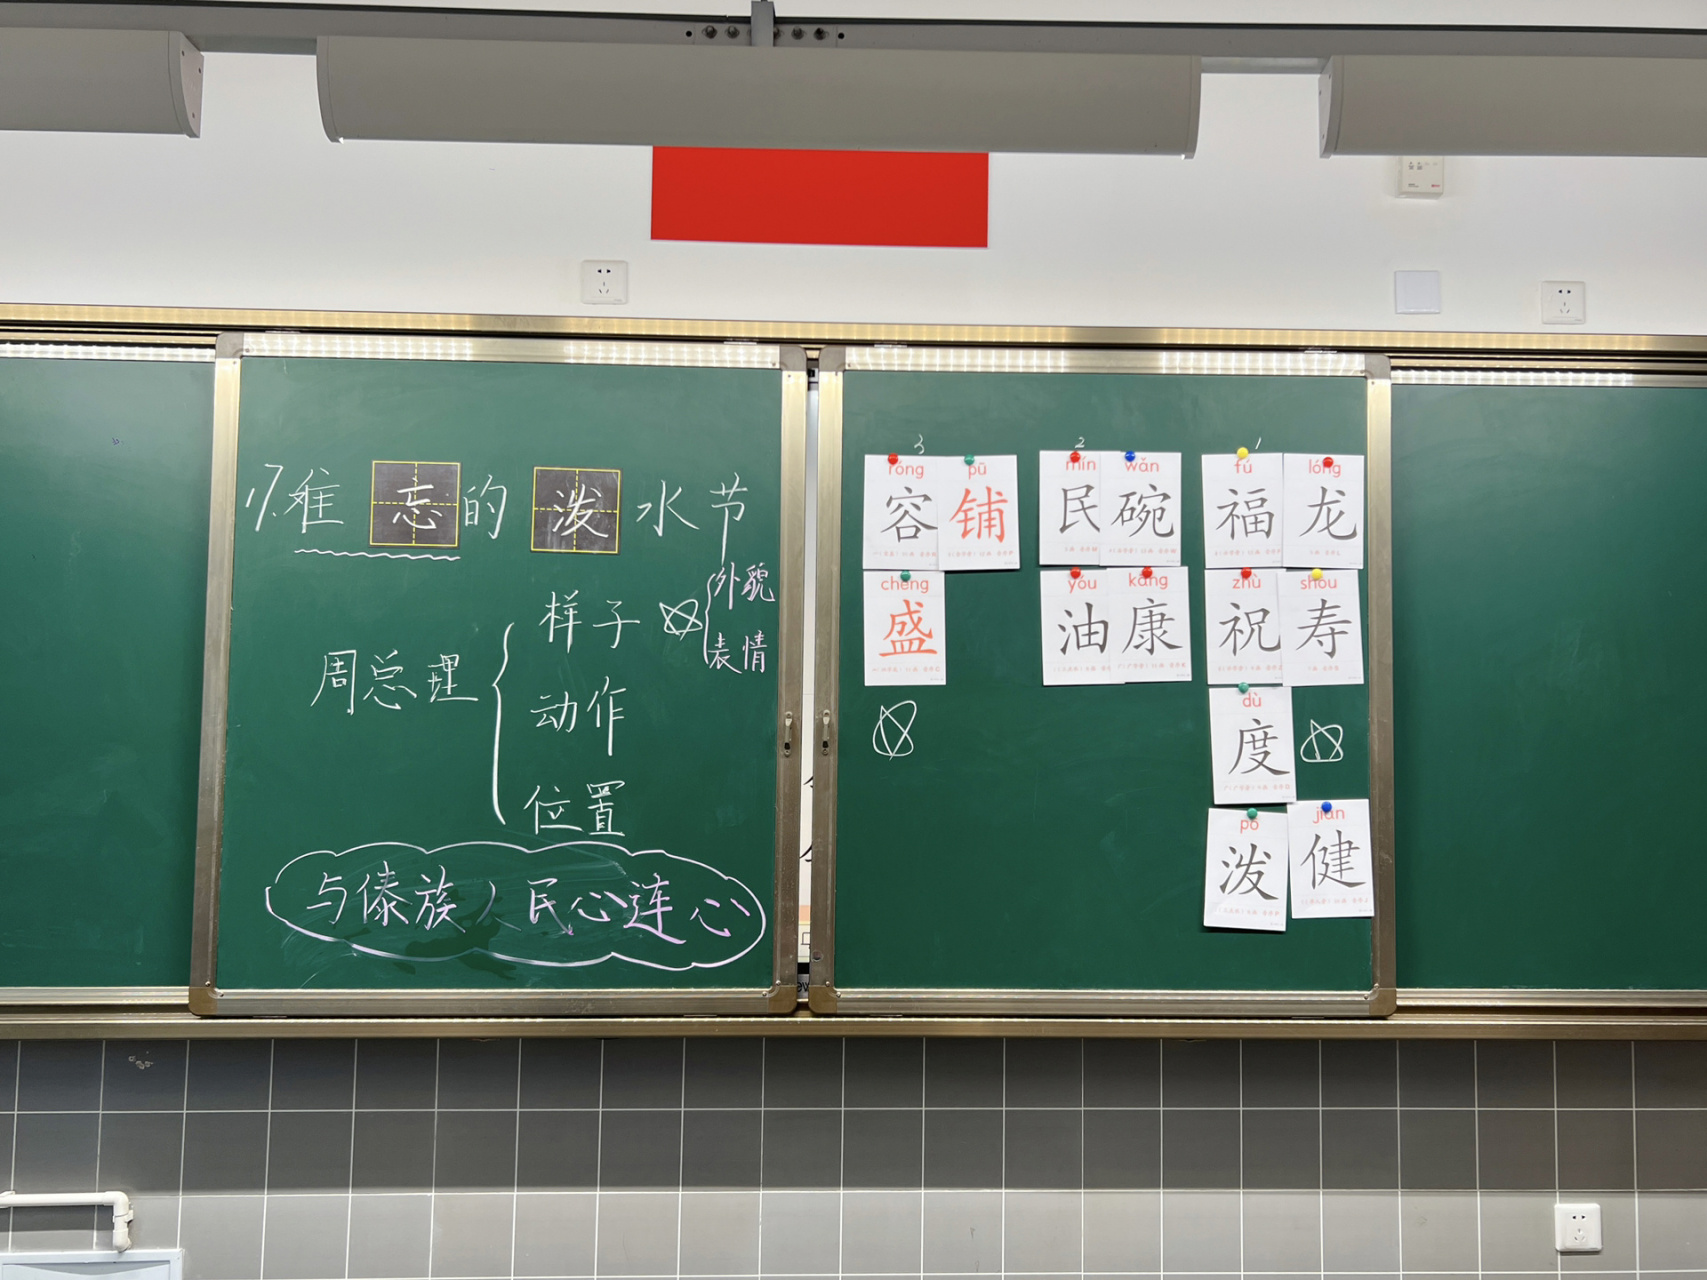 17.难忘的泼水节
周总理
样子
外貌
表情
动作
位置
与傣族人民心连心
3
róng pū
容 铺
chéng
盛
2
mín wǎn
民 碗
yóu kāng
油 康
1
fú lóng
福 龙
zhù shòu
祝 寿
dù
度
pō jiàn
泼 健